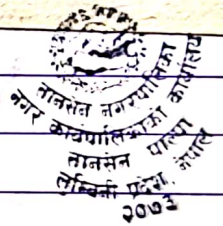 तानसेन नगरपालिका
नगर कार्यपालिकाको कार्यालय
तानसेन पाल्पा
लुम्बिनी प्रदेश, नेपाल
२०७३